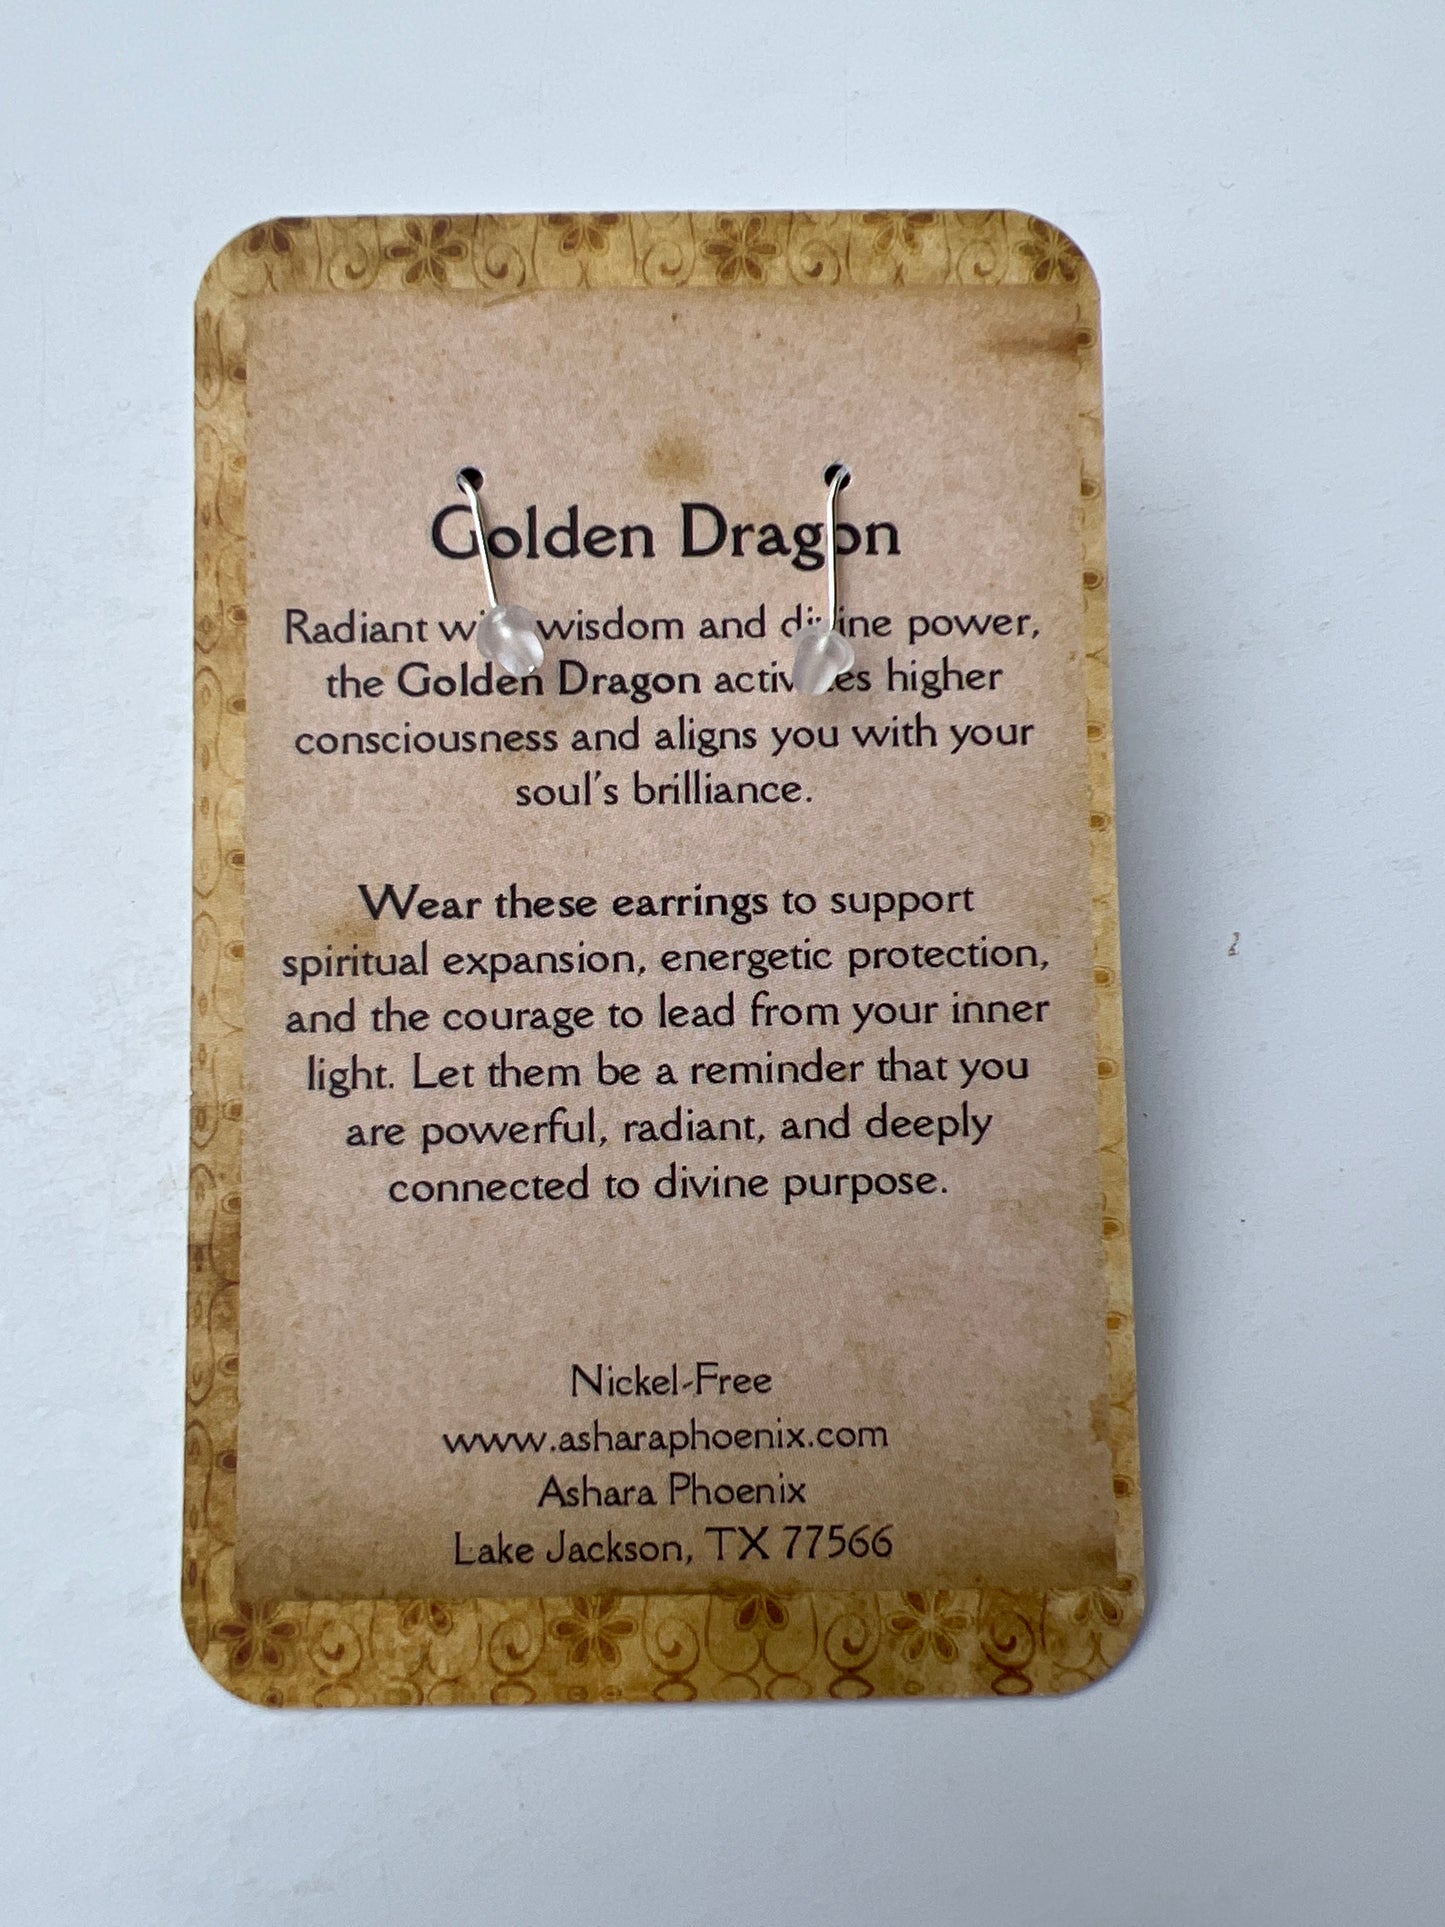 Golden Dragon
Radiant with wisdom and divine power,
the Golden Dragon activates higher
consciousness and aligns you with your
soul's brilliance.
Wear these earrings to support
spiritual expansion, energetic protection,
and the courage to lead from your inner
light. Let them be a reminder that you
are powerful, radiant, and deeply
connected to divine purpose.
Nickel-Free
www.asharaphoenix.com
Ashara Phoenix
Lake Jackson, TX 77566